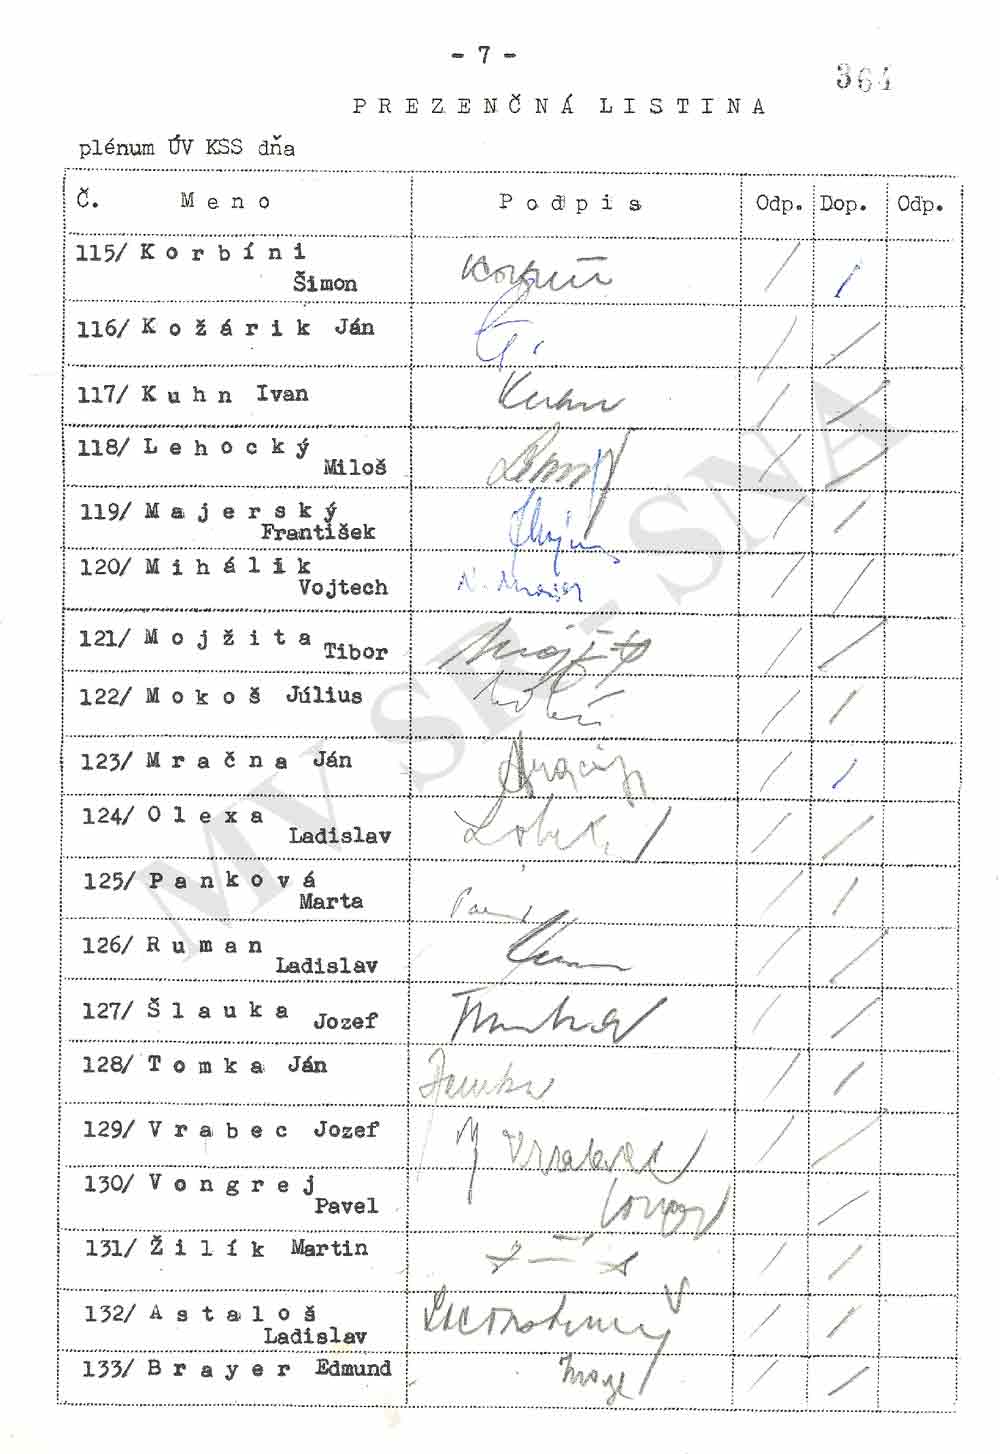 - 7 -
364
P R E Z E N Č N Á  L I S T I N A
plénum ÚV KSS dňa
Č. M e n o P o d p i s Odp. Dop. Odp.
115/ K o r b í n i
Šimon
116/ K o ž á r i k Ján
117/ K u h n Ivan
Kuhn
118/ L e h o c k ý
Miloš
119/ M a j e r s k ý
František
120/ M i h á l i k
Vojtech
121/ M o j ž i t a
Tibor
122/ M o k o š Július
123/ M r a č n a Ján
124/ O l e x a
Ladislav
125/ P a n k o v á
Marta
126/ R u m a n
Ladislav
127/ Š l a u k a
Jozef
128/ T o m k a Ján
129/ V r a b e c Jozef
J Vrabec
130/ V o n g r e j
Pavel
131/ Ž i l í k Martin
132/ A s t a l o š
Ladislav
133/ B r a y e r Edmund
MV SR - SNA